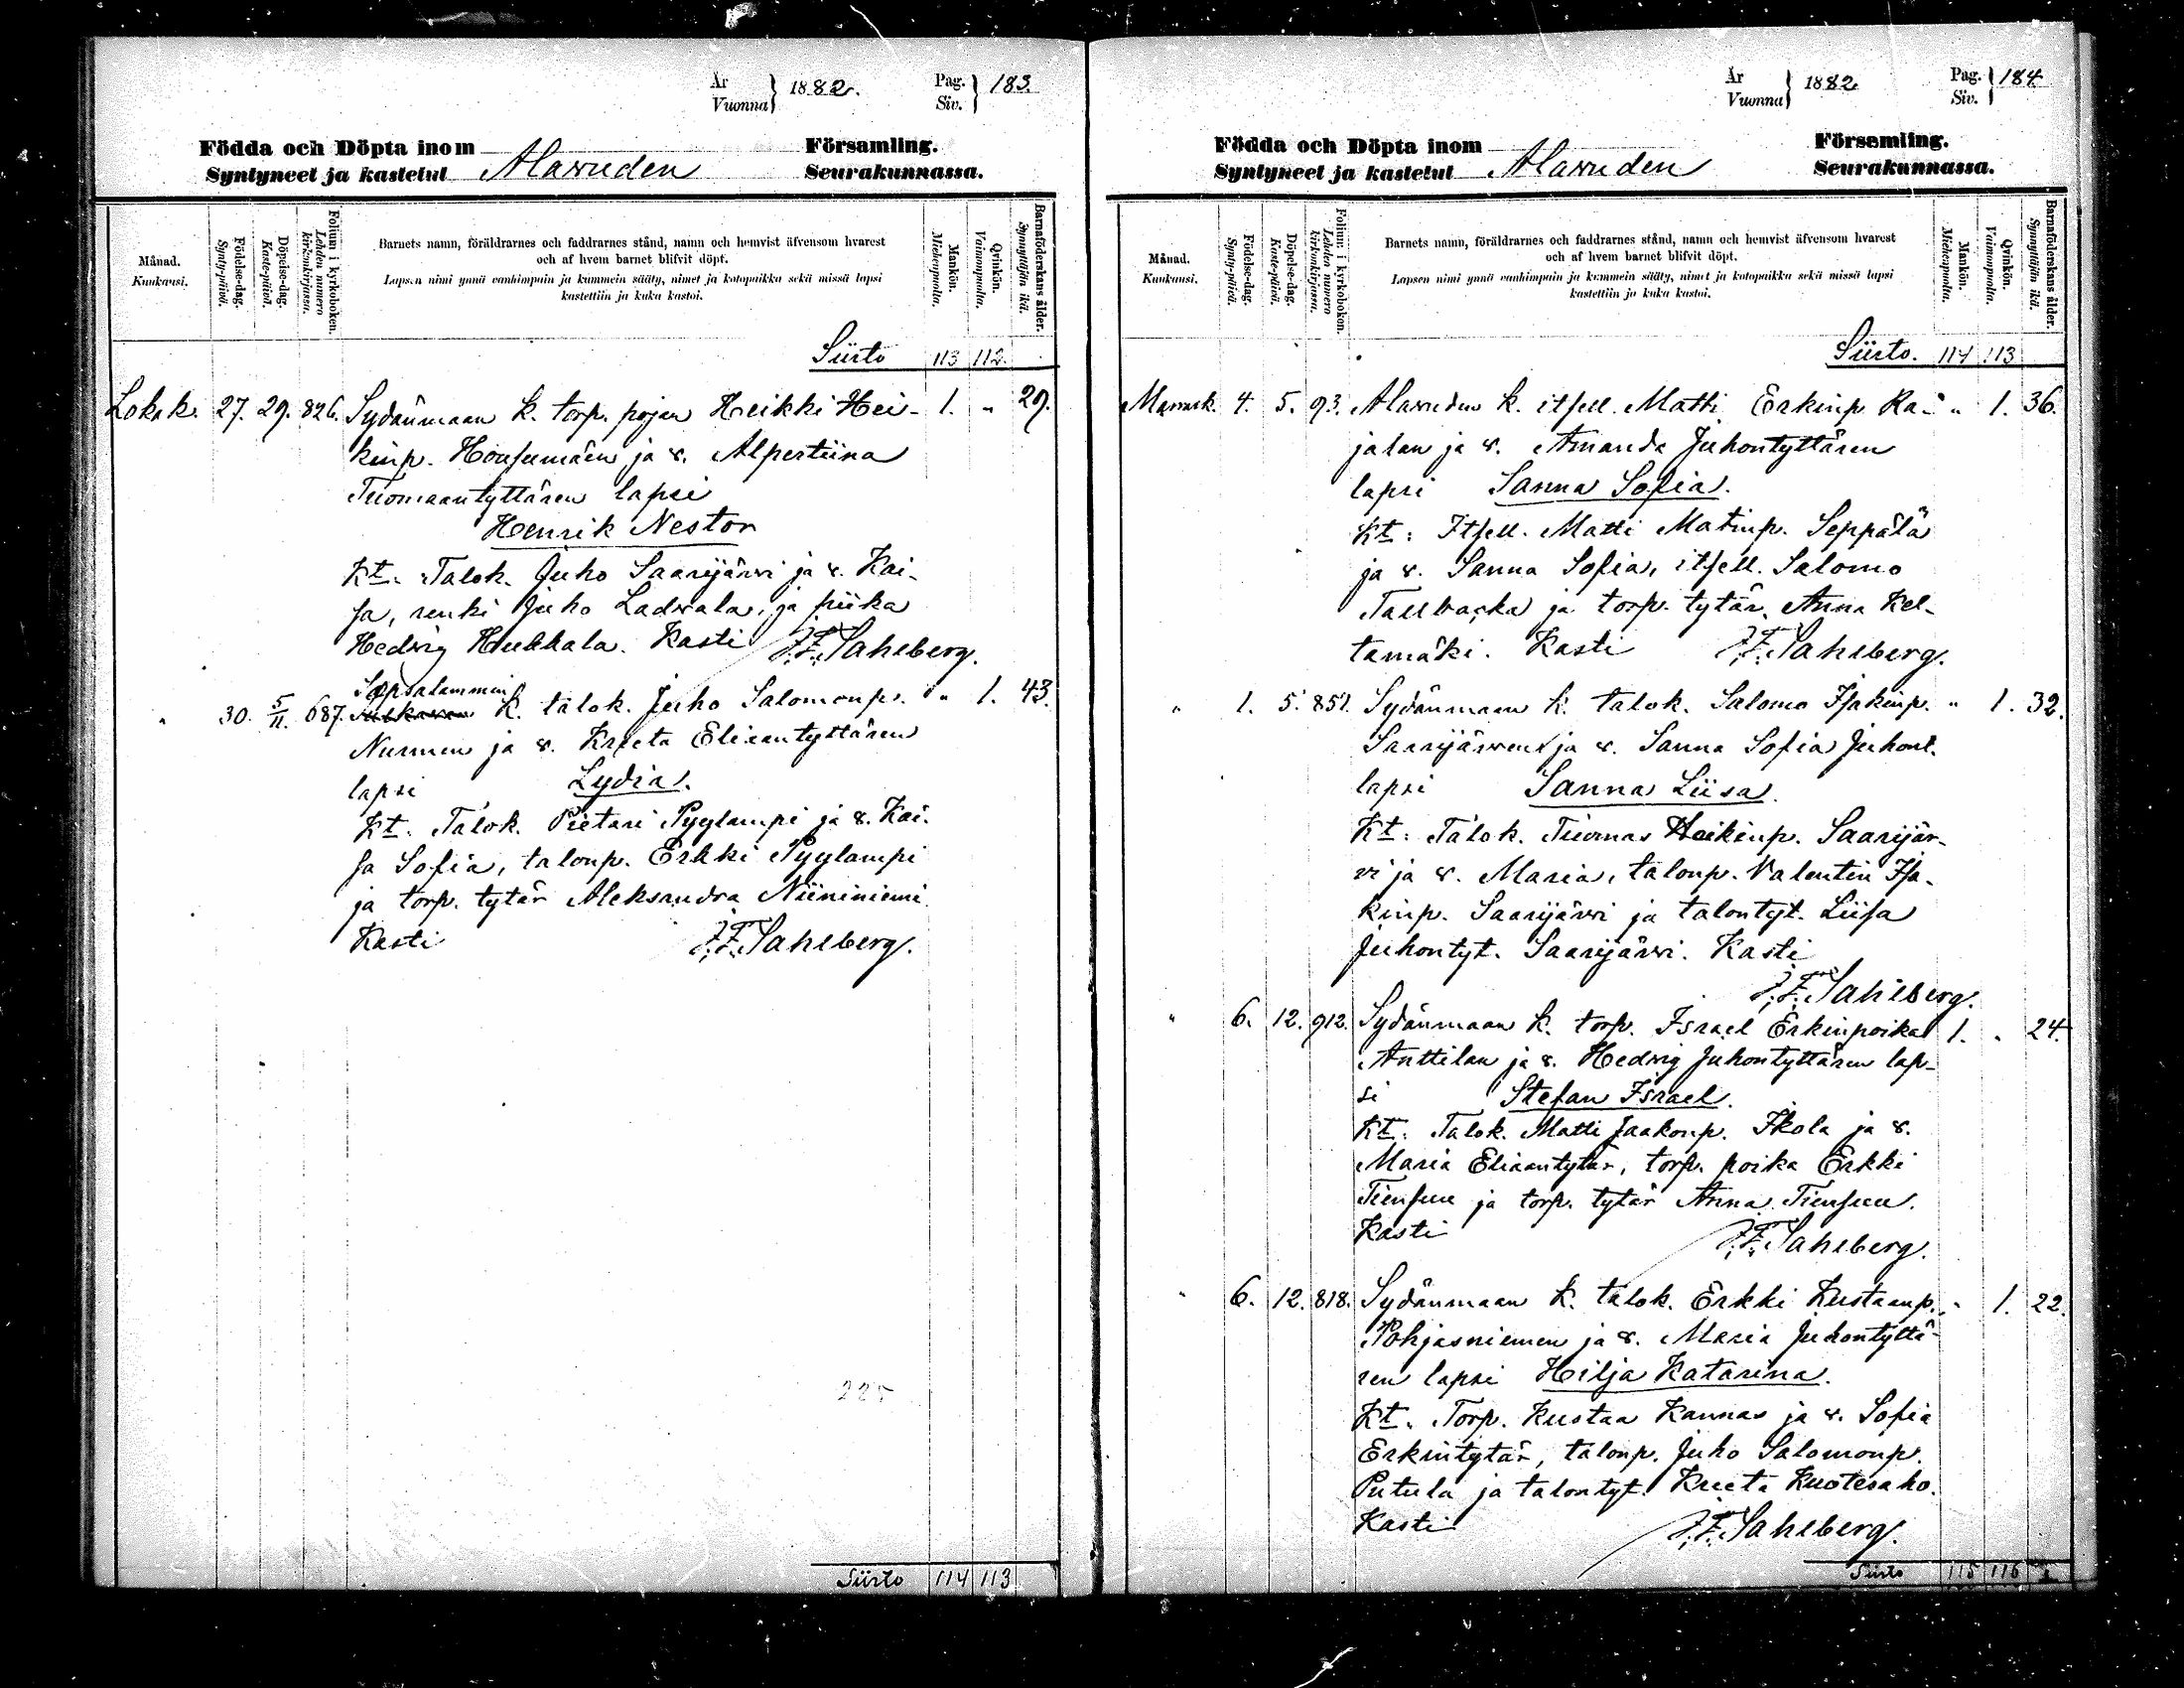 År
Vuonna } 1882.
Pag.
Siv. } 183.
Födda och Döpta inom Församling.
Syntyneet ja kastetut Alavuden Seurakunnassa.
Månad.
Kuukausi.
Födelse-dag.
Synty-päivä.
Döpelse-dag.
Kaste-päivä.
Folium i kyrkoboken.
Lehden numero
kirkonkirjassa.
Barnets namn, föräldrarnes och faddrarnes stånd, namn och hemvist äfvensom hvarest
och af hvem barnet blifvit döpt.
Lapsen nimi ynnä vanhimpain ja kummein sääty, nimet ja kotopaikka sekä missä lapsi
kastettiin ja kuka kastoi.
Mankön.
Miehenpuolta.
Qvinkön.
Vaimonpuolta.
Barnaföderskans ålder.
Synnyttäjän ikä.
Siirto 113 112.
Lokak. 27. 29. 826. Sydänmaan k. torp. pojan Heikki Hei- 1. „ 29.
kinp. Houfumäen ja v. Alpertiina
Tuomaantyttären lapsi
Henrik Nestor
Kt. Talok. Juho Saarijärvi ja v. Kai-
sa, renki Juho Ladvala, ja piika
Hedvig Hukkala. Kasti J.F. Sahlberg.
Sapsalammin
„ 30. 5/11. 687. k. talok. Juho Salomonp. „ 1. 43.
Nurmen ja v. Kreeta Eliaantyttären
lapsi Lydia.
Kt. Talok. Pietari Pyylampi ja v. Kai-
sa Sofia, talonp. Erkki Pyylampi
ja torp. tytär Aleksandra Niininiemi
Kasti J.F. Sahlberg.
225
Siirto 114 113
År
Vuonna } 1882.
Pag.
Siv. } 184
Födda och Döpta inom Församling.
Syntyneet ja kastetut Alavuden Seurakunnassa.
Månad.
Kuukausi.
Födelse-dag.
Synty-päivä.
Döpelse-dag.
Kaste-päivä.
Folium i kyrkoboken.
Lehden numero
kirkonkirjassa.
Barnets namn, föräldrarnes och faddrarnes stånd, namn och hemvist äfvensom hvarest
och af hvem barnet blifvit döpt.
Lapsen nimi ynnä vanhimpain ja kummein sääty, nimet ja kotopaikka sekä missä lapsi
kastettiin ja kuka kastoi.
Mankön.
Miehenpuolta.
Qvinkön.
Vaimonpuolta.
Barnaföderskans ålder.
Synnyttäjän ikä.
Siirto. 114 113
Marrask. 4. 5. 93. Alavuden k. itsell. Matti Erkinp. Ka- „ 1. 36.
jalan ja v. Amanda Juhontyttären
lapsi Sanna Sofia.
Kt: Itsell. Matti Matinp. Seppälä
ja v. Sanna Sofia, itsell. Salomo
Tallbacka ja torp. tytär Anna Kel-
tamäki. Kasti J.F. Sahlberg.
„ 1. 5. 851. Sydänmaan k. talok. Salomo Isakinp. „ 1. 32.
Saarijärven ja v. Sanna Sofia Juhont.
lapsi Sanna Liisa.
Kt: Talok. Tuomas Heikinp. Saarijär-
vi ja v. Maria, talonp. Valentin Isa-
kinp. Saarijärvi ja talontyt. Liisa
Juhontyt. Saarijärvi. Kasti
J.F. Sahlberg.
„ 6. 12. 912. Sydänmaan k. torp. Israel Erkinpoika 1. „ 24.
Anttilan ja v. Hedvig Juhontyttären lap-
si Stefan Israel.
Kt: Talok. Matti Jaakonp. Ikola ja v.
Maria Eliaantytär, torp. poika Erkki
Tiensuu ja torp. tytär Anna Tiensuu.
Kasti J.F. Sahlberg.
„ 6. 12. 818. Sydänmaan k. talok. Erkki Kustaanp. „ 1. 22.
Pohjasniemen ja v. Maria Juhontyttä-
ren lapsi Hilja Katarina.
Kt. Torp. Kustaa Kannas ja v. Sofia
Erkintytär, talonp. Juho Salomonp.
Putula ja talontyt. Kreeta Kuotesaho.
Kasti J.F. Sahlberg.
Siirto 115 116